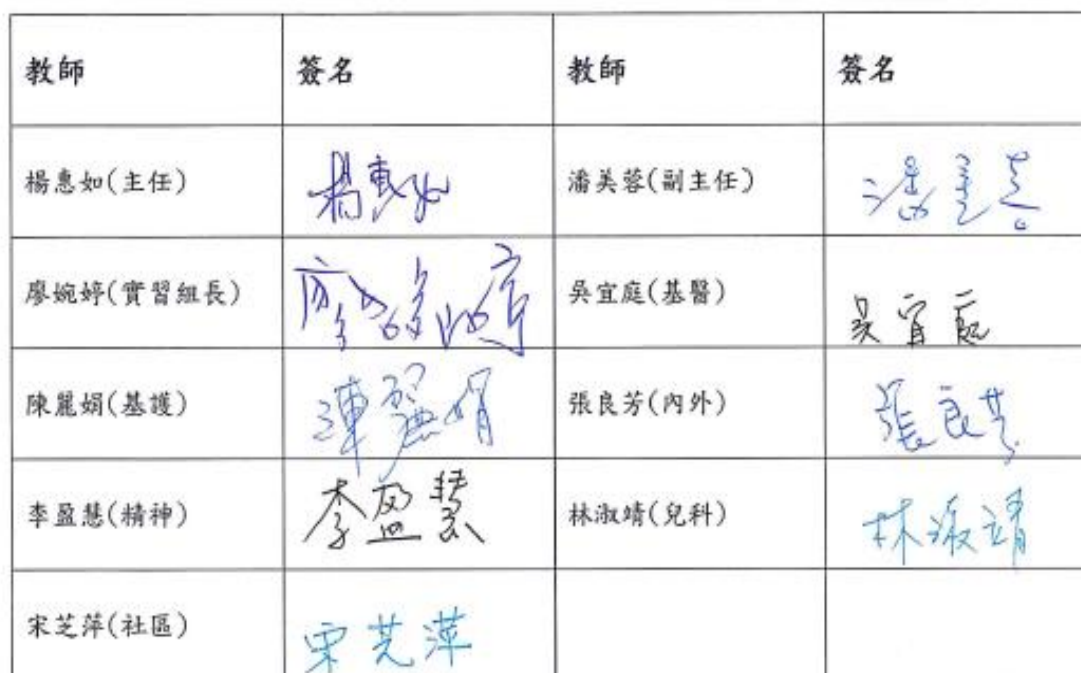 教師 簽名 教師 簽名
楊惠如(主任) 楊惠如 潘美蓉(副主任) 潘美蓉
廖婉婷(實習組長) 廖婉婷 吳宜庭(基醫) 吳宜庭
陳麗娟(基護) 陳麗娟 張良芳(內外) 張良芳
李盈慧(精神) 李盈慧 林淑靖(兒科) 林淑靖
宋芝萍(社區) 宋芝萍